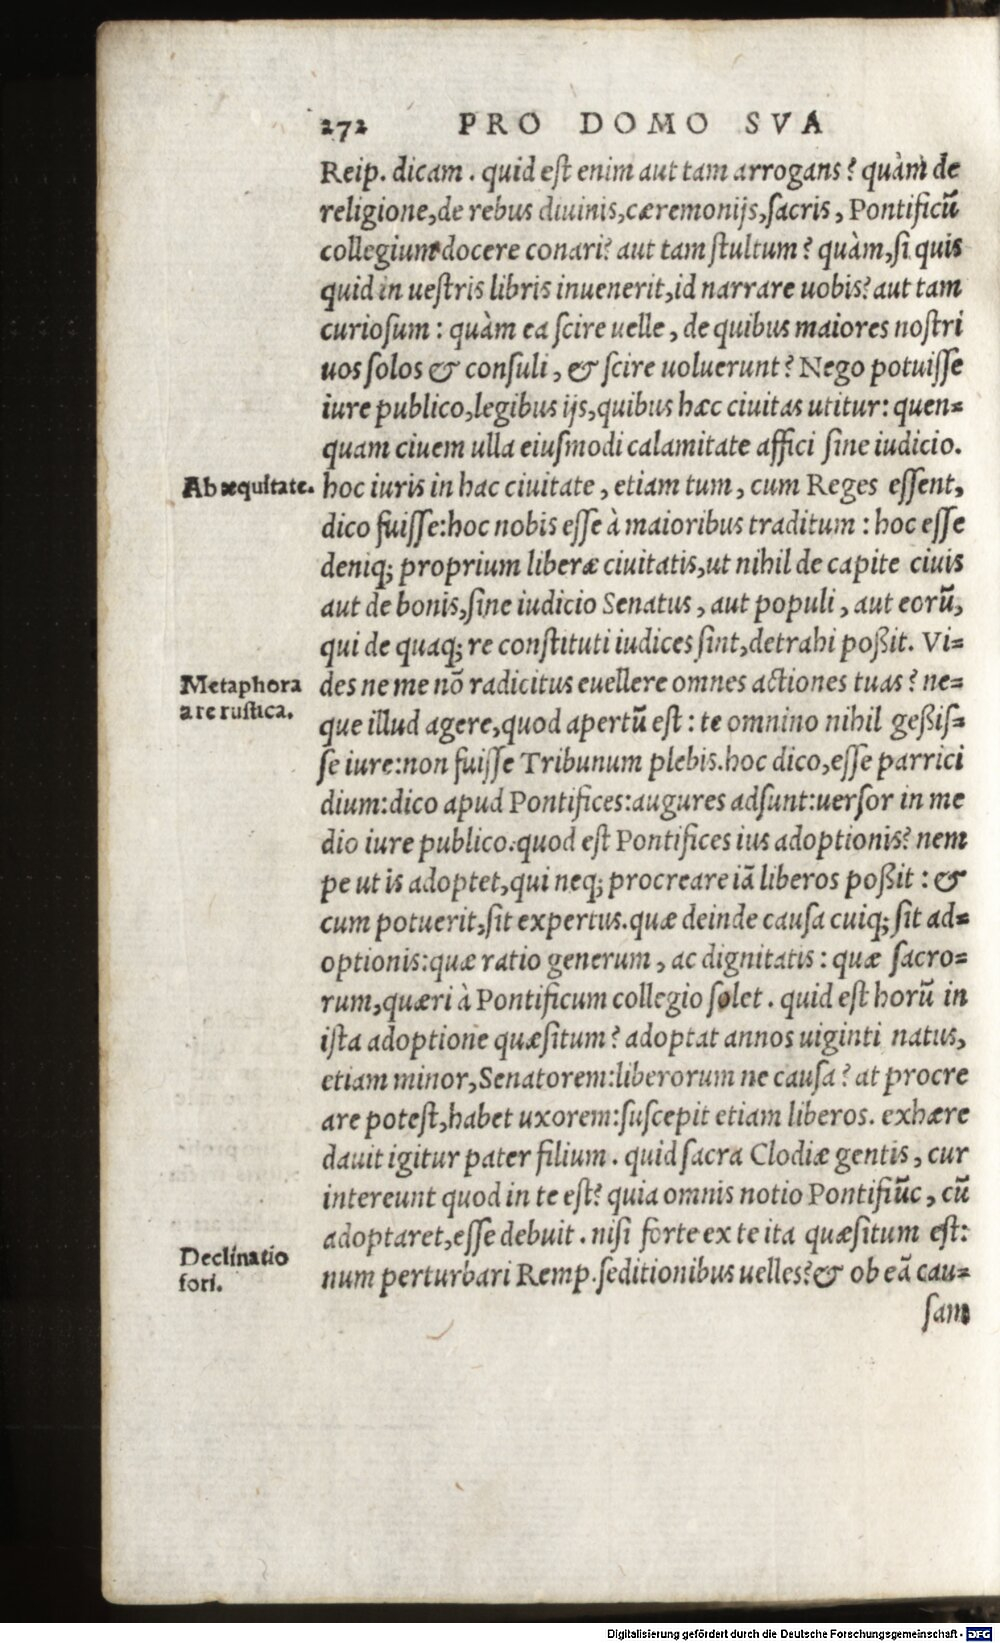 272 PRO DOMO SVA
Reip. dicam. quid eſt enim aut tam arrogans? quàm de
religione, de rebus diuinis, cæremonijs, ſacris, Pontificũ
collegium docere conari? aut tam ſtultum? quàm, ſi quis
quid in ueſtris libris inuenerit, id narrare uobis? aut tam
curioſum: quàm ea ſcire uelle, de quibus maiores noſtri
uos ſolos & conſuli, & ſcire uoluerunt? Nego potuiſſe
iure publico, legibus ijs, quibus hæc ciuitas utitur: quen=
quam ciuem ulla eiuſmodi calamitate affici ſine iudicio.
Ab æquitate. hoc iuris in hac ciuitate, etiam tum, cum Reges eſſent,
dico fuiſſe: hoc nobis eſſe à maioribus traditum: hoc eſſe
deniq; proprium liberæ ciuitatis, ut nihil de capite ciuis
aut de bonis, ſine iudicio Senatus, aut populi, aut eorũ,
qui de quaq; re conſtituti iudices ſint, detrahi poßit. Vi=
Metaphora
a re ruſtica.
des ne me nõ radicitus euellere omnes actiones tuas? ne=
que illud agere, quod apertũ eſt: te omnino nihil geßiſ=
ſe iure: non fuiſſe Tribunum plebis. hoc dico, eſſe parrici
dium: dico apud Pontifices: augures adſunt: uerſor in me
dio iure publico. quod eſt Pontifices ius adoptionis? nem
pe ut is adoptet, qui neq; procreare iã liberos poßit: &
cum potuerit, ſit expertus. quæ deinde cauſa cuiq; ſit ad=
optionis: quæ ratio generum, ac dignitatis: quæ ſacro=
rum, quæri à Pontificum collegio ſolet. quid eſt horũ in
iſta adoptione quæſitum? adoptat annos uiginti natus,
etiam minor, Senatorem: liberorum ne cauſa? at procre
are poteſt, habet uxorem: ſuſcepit etiam liberos. exhære
dauit igitur pater filium. quid ſacra Clodiæ gentis, cur
intereunt quod in te eſt? quia omnis notio Pontifiũc, cũ
adoptaret, eſſe debuit. niſi forte ex te ita quæſitum eſt:
Declinatio
fori.
num perturbari Remp. ſeditionibus uelles? & ob eã cau=
ſam
Digitalisierung gefördert durch die Deutsche Forschungsgemeinschaft - DFG